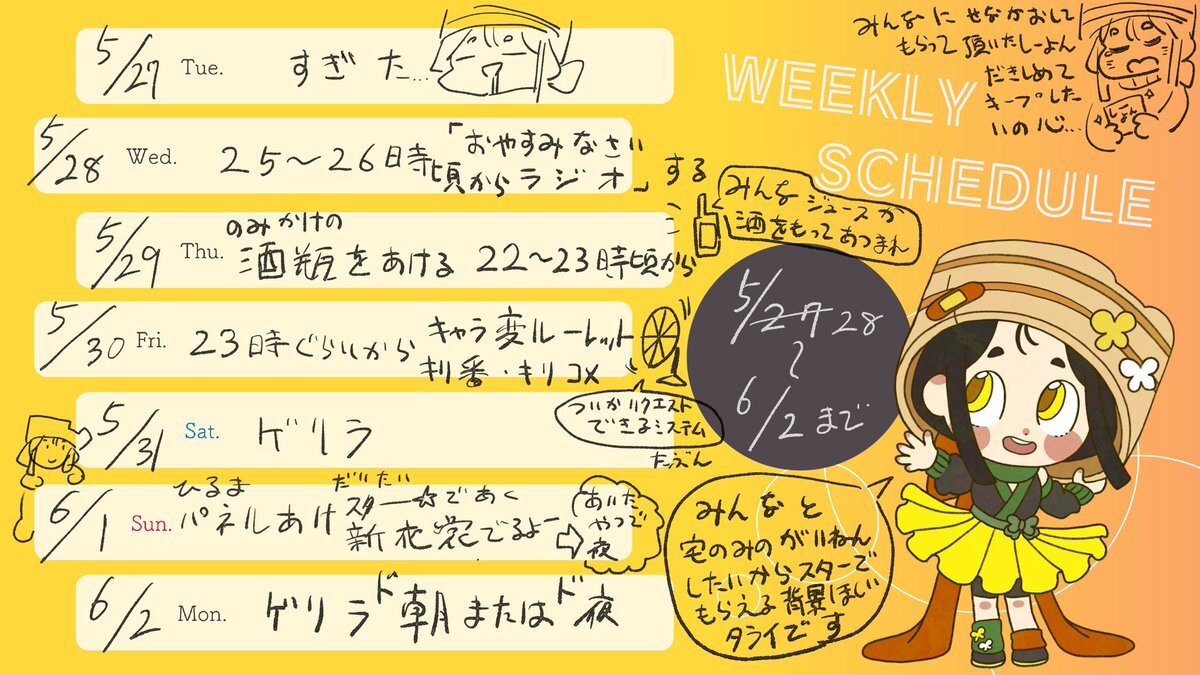 WEEKLY
SCHEDULE
みんなに せなかおして
もらって頂いたしーよん
だきしめて
キープした
いの心…
しよん
5/27 Tue. すぎた…
5/28 Wed. 25〜26日時
頃から
「おやすみなさい
ラジオ」する
5/29 Thu. のみかけの
酒瓶をあける 22〜23時頃から
みんなジュースか
酒をもってあつまれ
5/30 Fri. 23時ぐらいから キャラ変ルーレット
利番・キリコメ
ついかリクエスト
できるシステム
たぶん
5/31 Sat. ゲリラ
6/1 Sun. ひるま
パネルあけ
だいたい
スター☆であく
新衣装でるよー
あいた
やつで
夜
6/2 Mon. ゲリラ ド朝またはド夜
5/27 28
〜
6/2 まで
みんなと
宅のみのがいねん
したいからスターで
もらえる背景ほしい
タライです